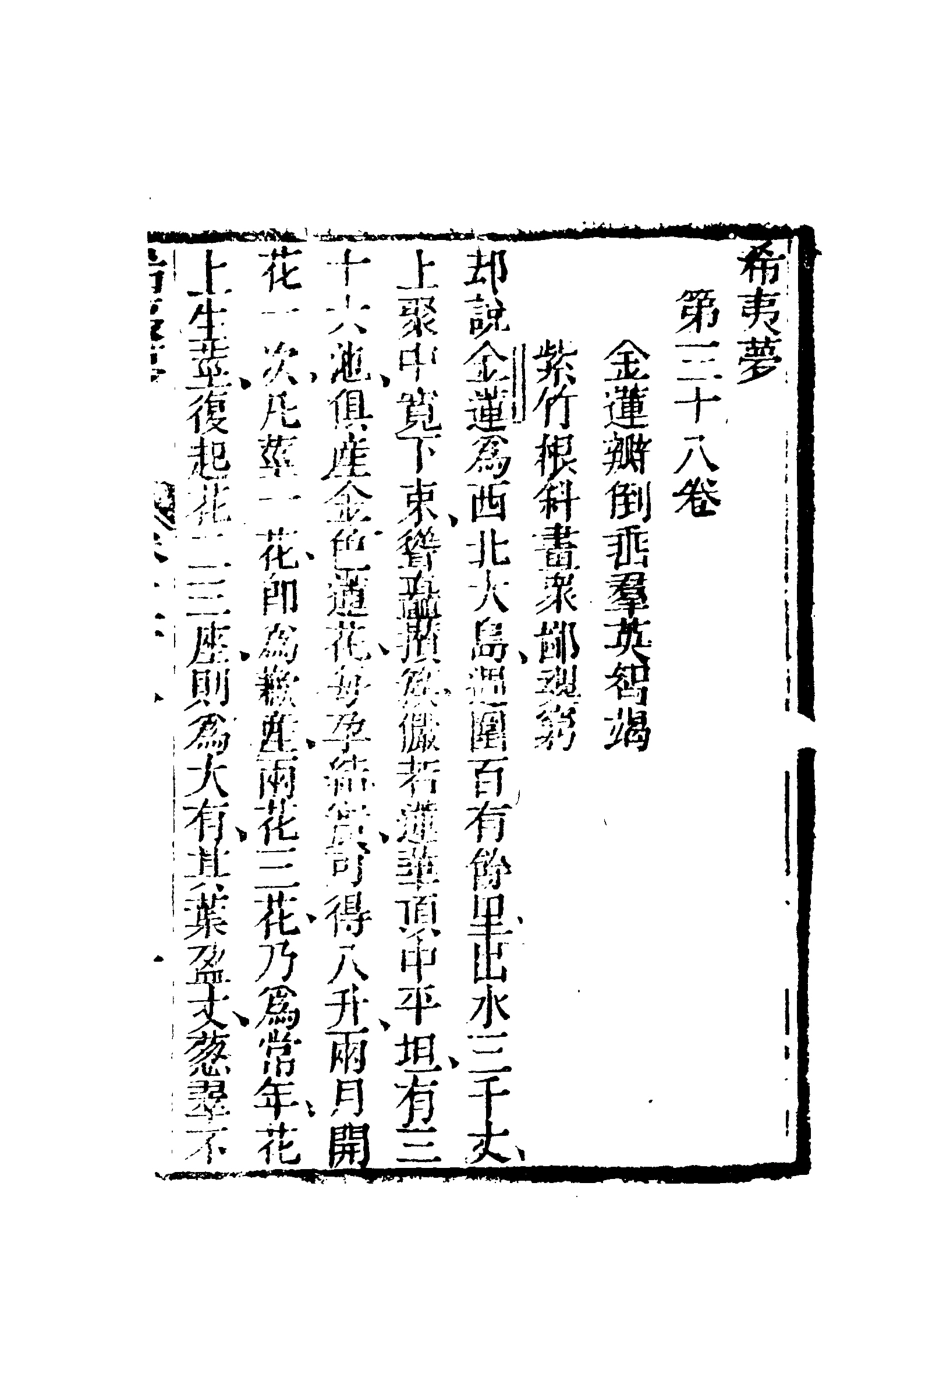 希夷夢
第三十八卷
金蓮瓣倒垂羣英智竭
紫竹根斜畫衆鄙裂窮
却說金蓮為西北大島週圍百有餘里出水三千丈
上聚中寬下束聳儼若蓮華頂中平坦有三
十六池俱産金色蓮花每孕結實可得八升兩月開
花一次凡莖一花即為歉產兩花三花乃為常年花
上生莖復起花二三座則為大有其葉盈丈蔥翠不